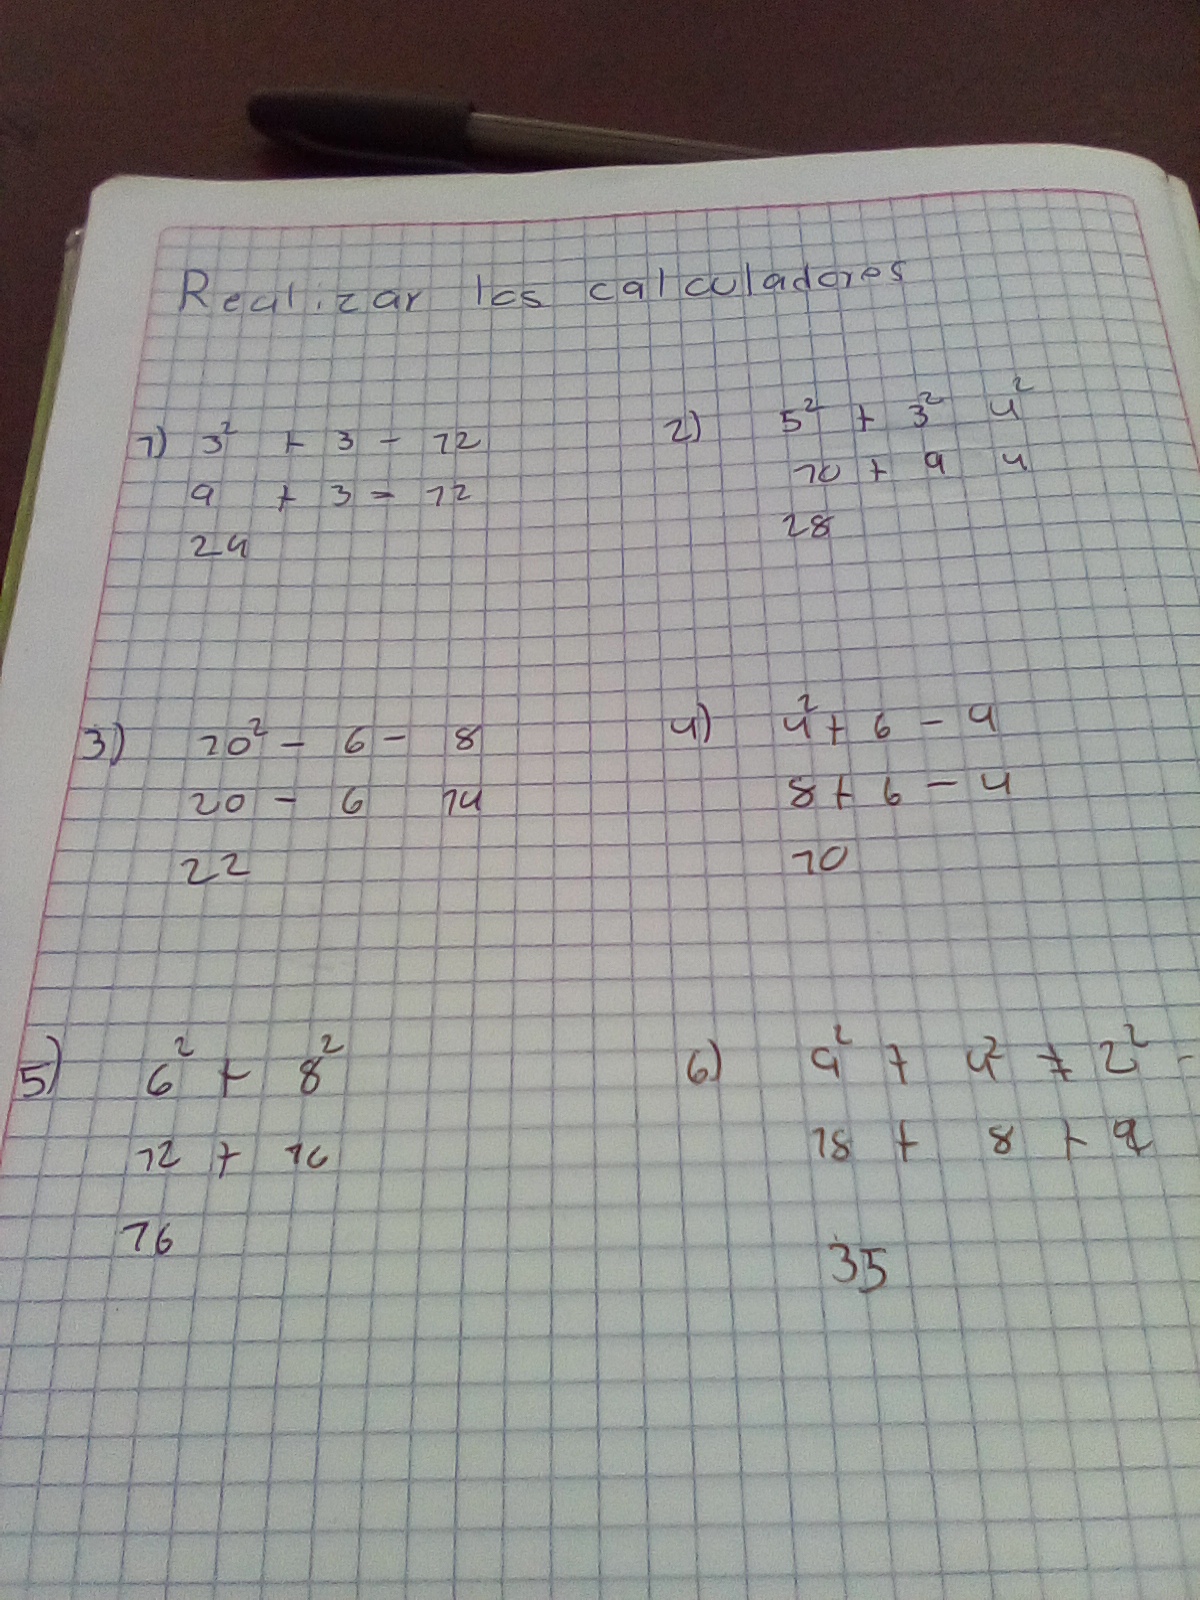 Realizar los calculadores
1) 3² + 3 - 12
9 + 3 = 12
24
2) 5² + 3² 4²
10 + 9 4
28
3) 10² - 6 - 8
20 - 6 14
22
4) 4² + 6 - 9
8 + 6 - 4
10
5) 6² + 8²
12 + 16
76
6) 9² + 4² + 2² -
18 + 8 + 9
35